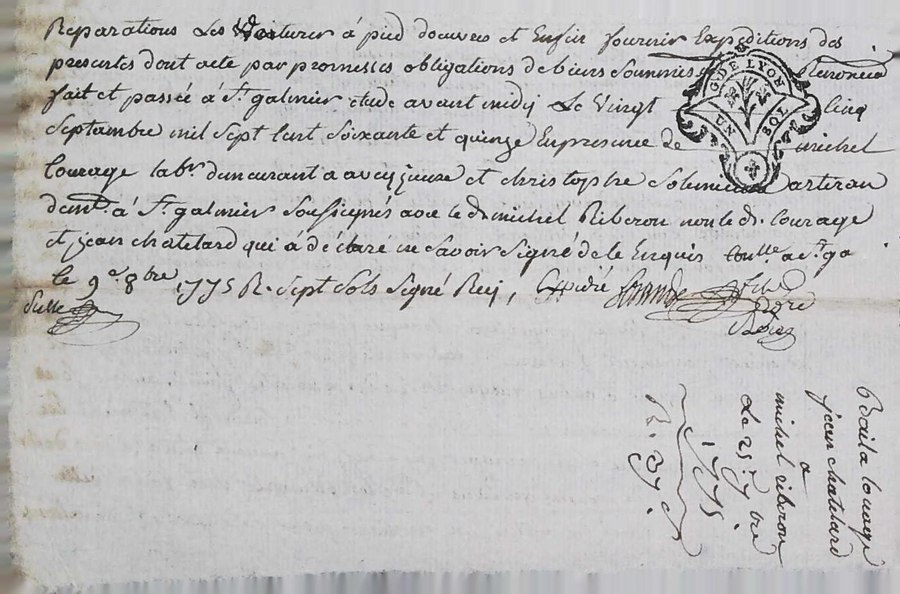 Reparations Les Voiturer à pied doeuvres et Enfin fournir Expeditions des
presentes dont acte par promesses obligations de biens Soumiss Renoncia
fait et passée à St. galmier etude avant midy Le Vingt Cinq
Septembre mil sept Cent Soixante et quinze En presence de michel
Courage labr. demeurant a aveyzieux et christophe artizan
demt. à St. galmier Soussignés avec led. michel Riberon non led. Courage
et jean chatelard qui à déclaré ne Savoir Signé de le Enquis Conlle a St. ga
le 9e. 8bre 1775 R. Sept Sols Signé Rey, Expédié
G. DE LYON
UN SOL
Bail a louage
jean chatelard
a
michel riberon
Le 25 7bre
1775
R. 3